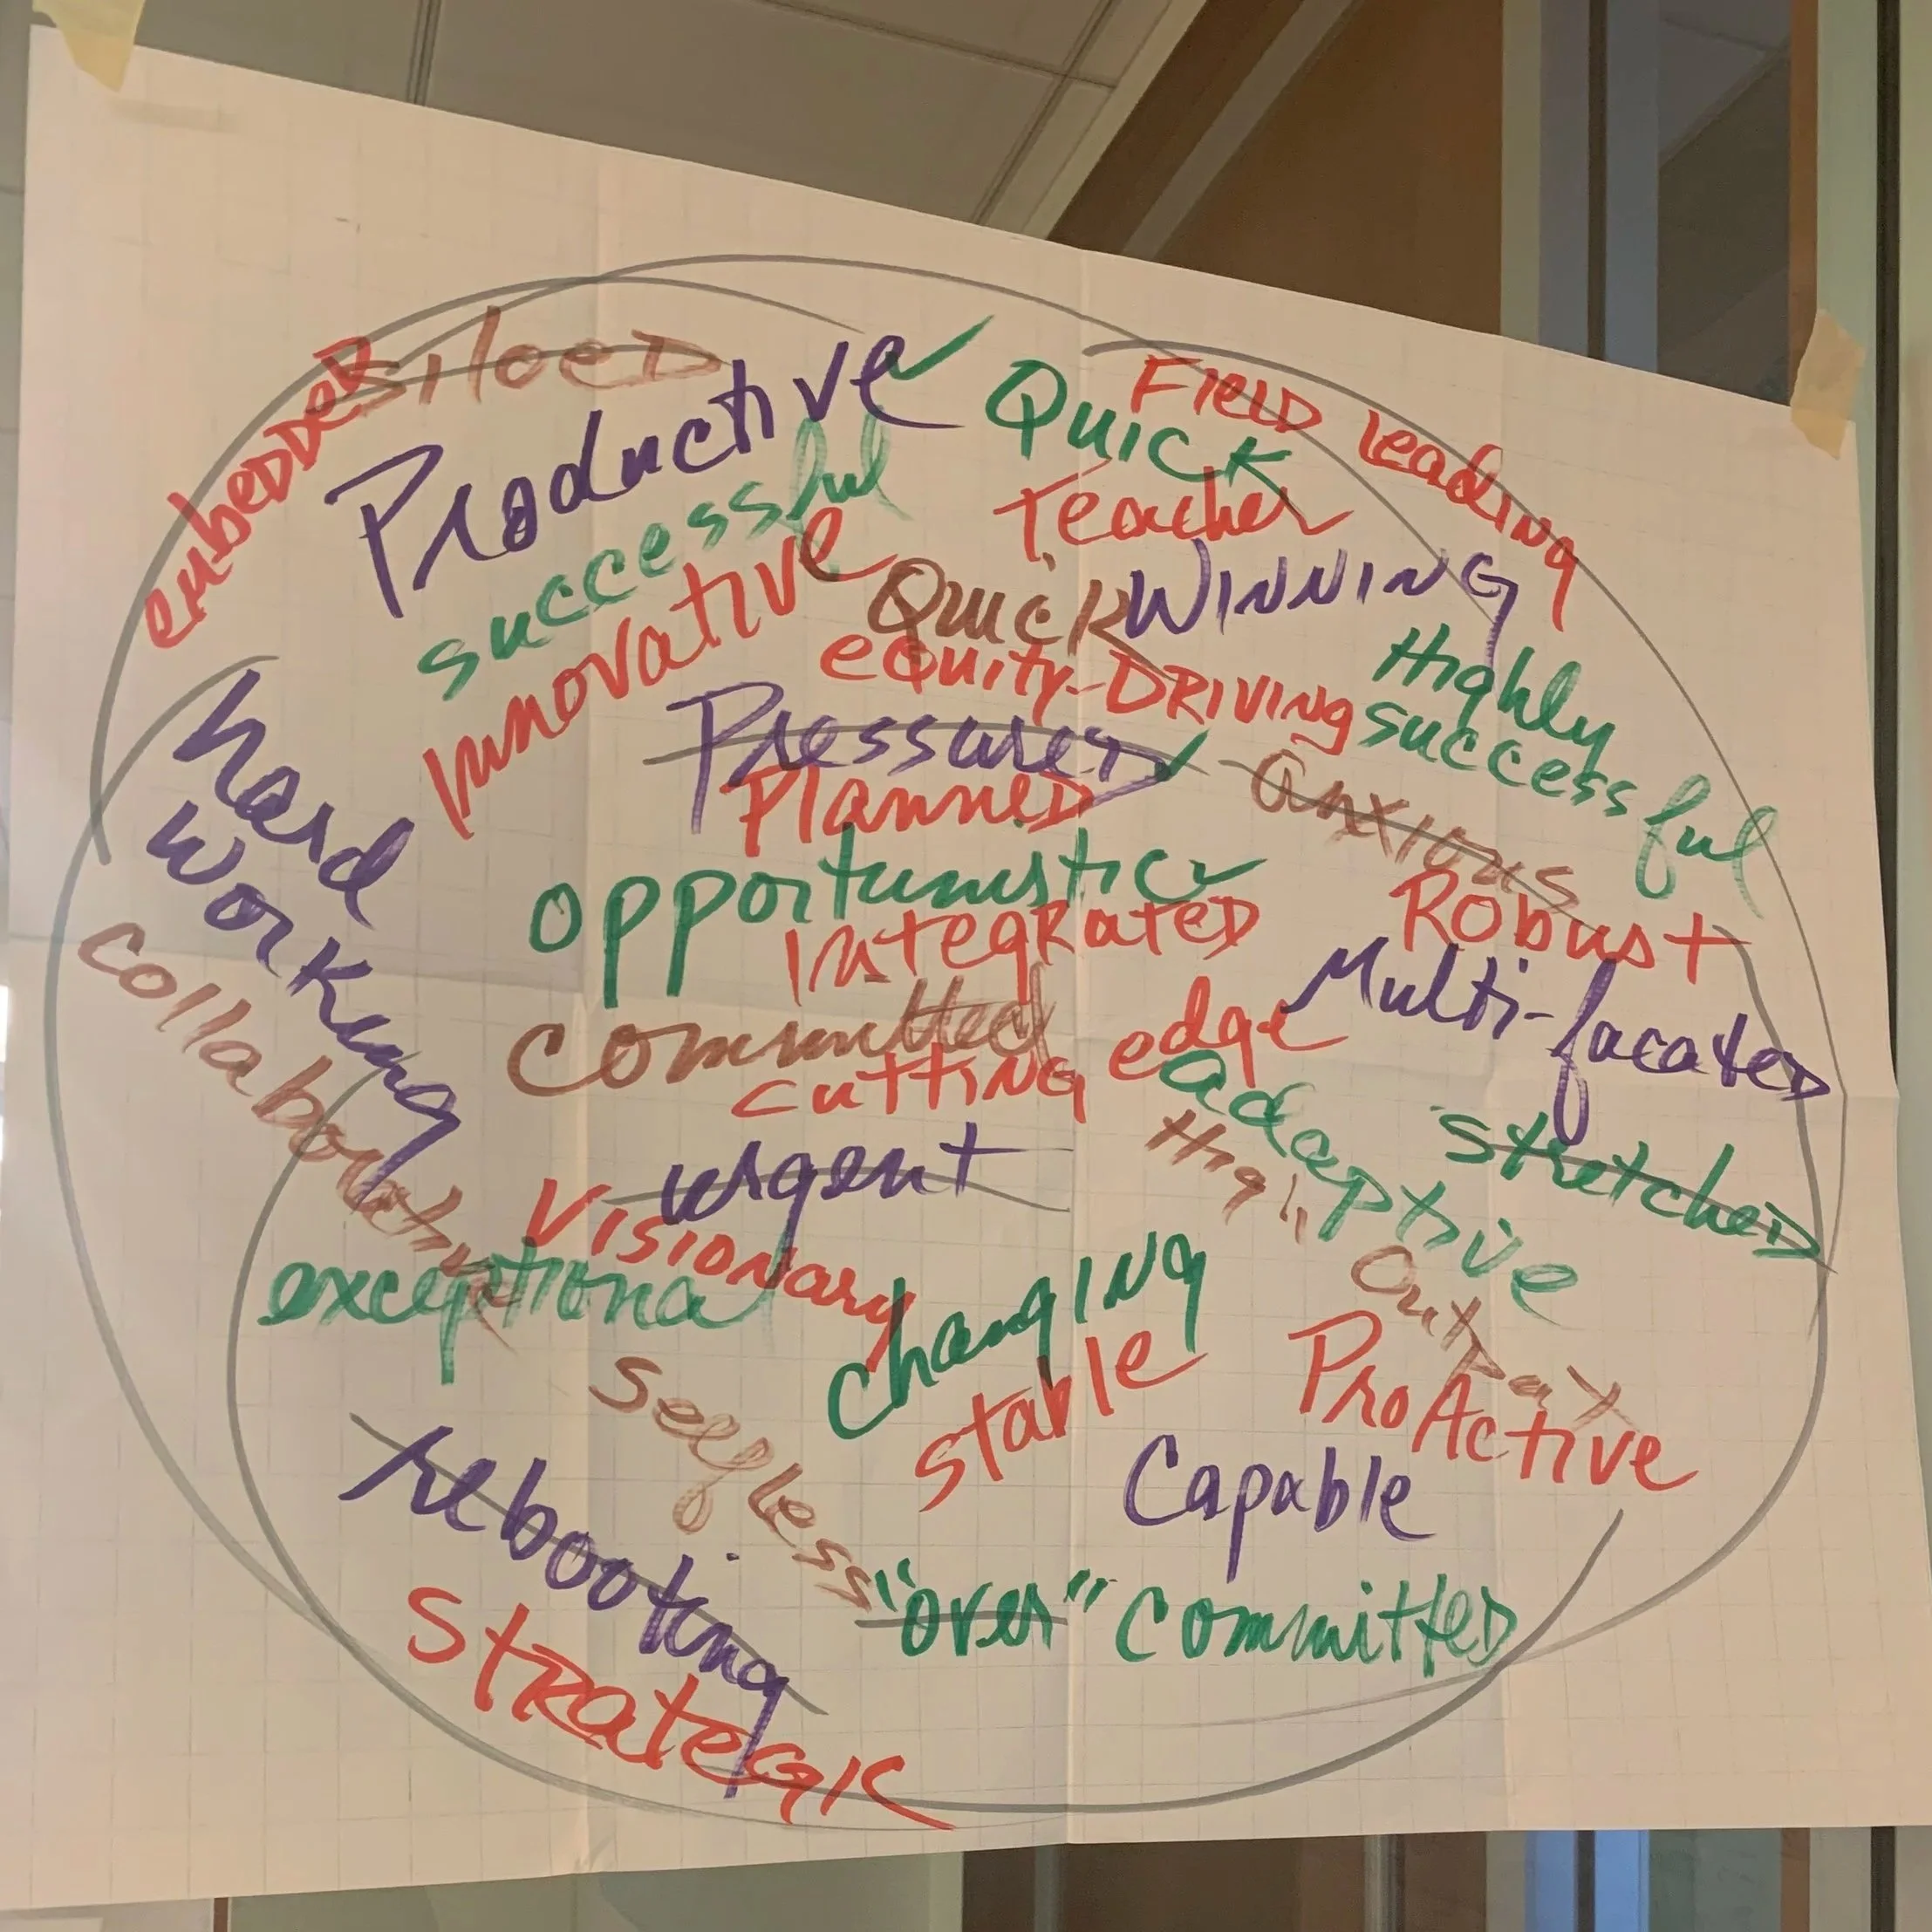 embeDDeD
siloeD
Productive
Quick
FIelD leading
successful
Teacher
Innovative
Quick WINNING
equity-DRIVING
Highly
successful
hard
working
PressureD
PlanneD
anxious
opportunistic
Robust
IntegRateD
Multi-facateD
collaborative
committed
cutting edge
adaptive
stretcheD
High
OutPut
urgent
Visionary
exceptional
changing
stable
ProActive
selfless
Capable
rebooting
"over" committeD
STRategic